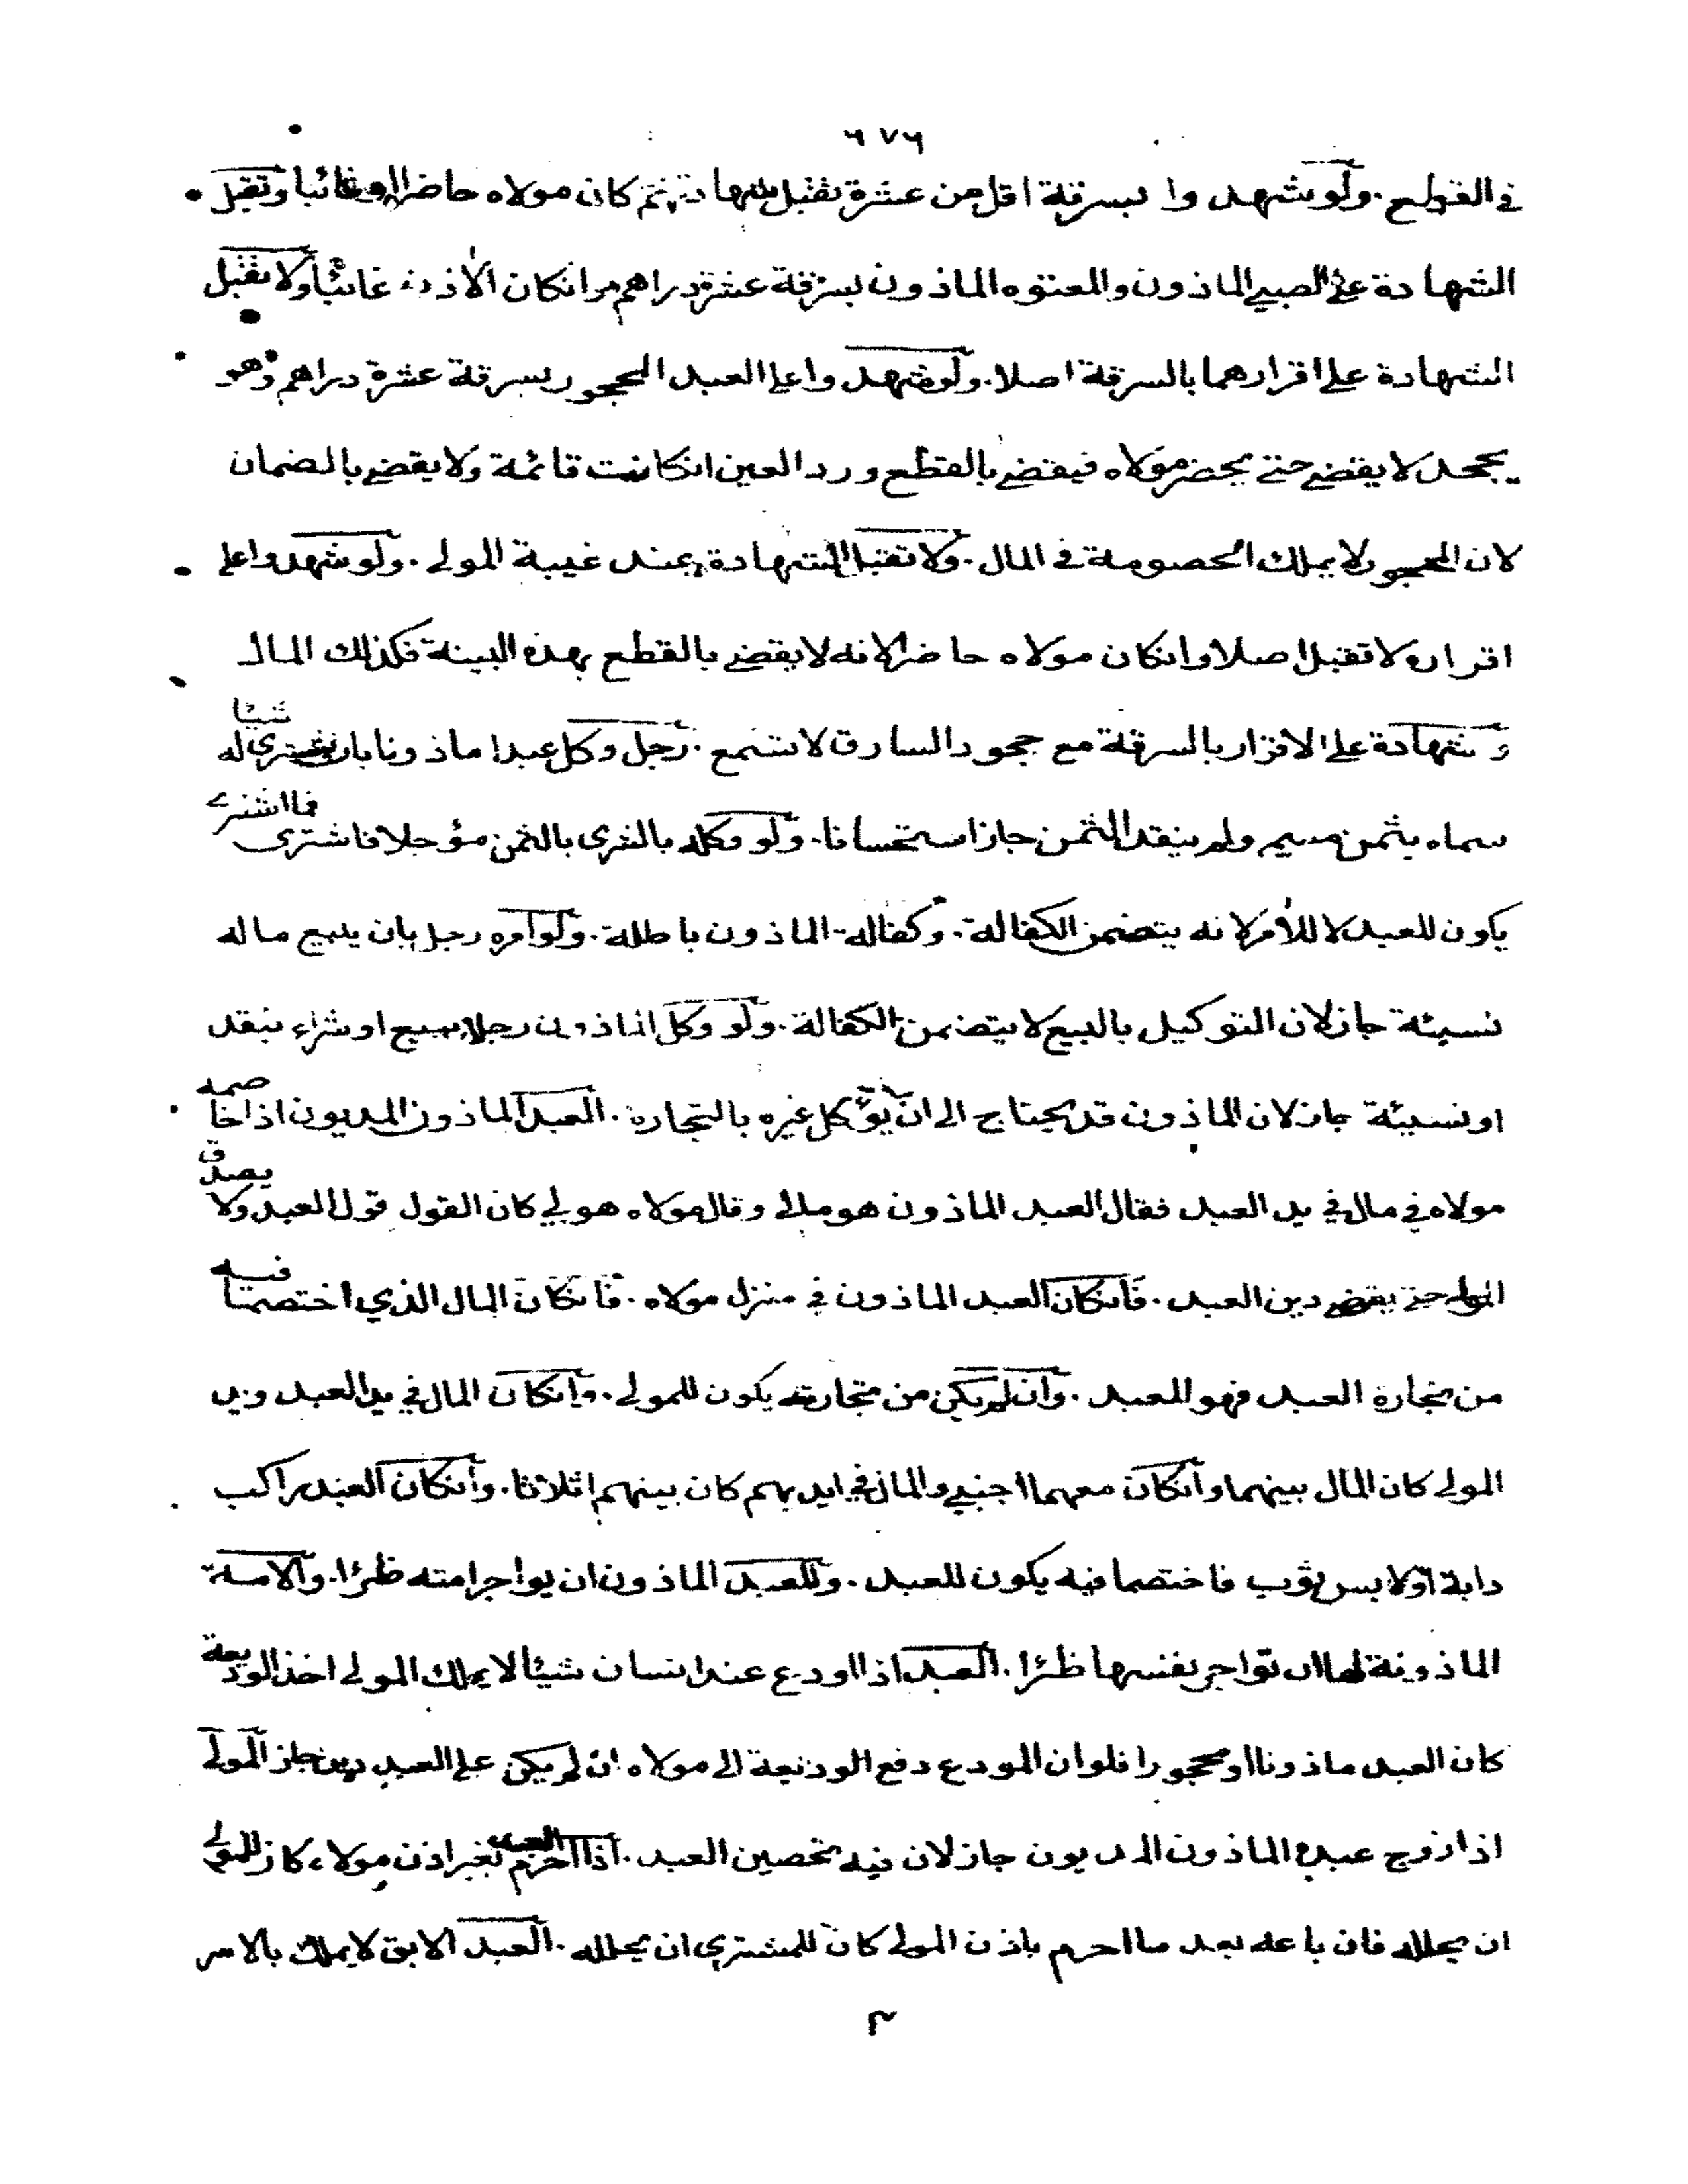 ٦٧٦
في القطع . ولو شهدوا بسرقة اقل من عشرة تقبل شهادتهم كان مولاه حاضرا او غائبا وتقبل
الشهادة على الصبي الماذون والمعتوه الماذون بسرقة عشرة دراهم وانكان الاذن غائبا ولا تقبل
الشهادة على اقرارهما بالسرقة اصلا . ولو شهدوا على العبد المحجور بسرقة عشرة دراهم وهو
يجحد لا يقضي حتى يحضر مولاه فيقضي بالقطع ورد العين انكانت قائمة ولا يقضي بالضمان
لان المحجور لا يملك الخصومة في المال . ولا تقبل الشهادة عند غيبة المولى . ولو شهدوا على
اقراره لا تقبل اصلا وانكان مولاه حاضرا لانه لا يقضي بالقطع بهذه البينة فكذلك المال
وشهادة على الاقرار بالسرقة مع جحود السارق لا تسمع . رجل وكل عبدا ماذونا بان يشتري له شيئا
سماه بثمن مسمى ولم ينقد الثمن جاز استحسانا . ولو وكله بالشرى بالثمن مؤجلا فاشترى فما اشترى
يكون للعبد لا للآمر لانه يتضمن الكفالة . وكفالة الماذون باطلة . ولو امره رجل بان يبيع ماله
نسيئة جاز لان التوكيل بالبيع لا يتضمن الكفالة . ولو وكل الماذون رجلا ببيع او شراء بنقد
او نسيئة جاز لان الماذون قد يحتاج الى ان يؤكل غيره بالتجارة . العبد الماذون المديون اذا خاصمه
مولاه في مال في يد العبد فقال العبد الماذون هو مالي وقال مولاه هو لي كان القول قول العبد ولا يصدق
المولى حتى يقضي دين العبد . فانكان العبد الماذون في منزل مولاه . فانكان المال الذي اختصما فيه
من تجارة العبد فهو للعبد . وان لم يكن من تجارته يكون للمولى . وانكان المال في يد العبد ويد
المولى كان المال بينهما وانكان معهما اجنبي والمال في ايديهم كان بينهم اثلاثا . وانكان العبد راكب
دابة او لابس ثوب فاختصما فيه يكون للعبد . وللعبد الماذون ان يواجر امته ظئرا . والامة
الماذونة لها ان تواجر نفسها ظئرا . العبد اذا اودع عند انسان شيئا لا يملك المولى اخذ الوديعة
كان العبد ماذونا او محجورا فلو ان المودع دفع الوديعة الى مولاه ان لم يكن على العبد دين جاز المولى
اذا زوج عبده الماذون المديون جاز لان فيه تحصين العبد . اذا احرم العبد بغير اذن مولاه كان للمولى
ان يحلله فان باعه بعد ما احرم باذن المولى كان للمشتري ان يحلله . العبد الابق لا يملك بالاسر